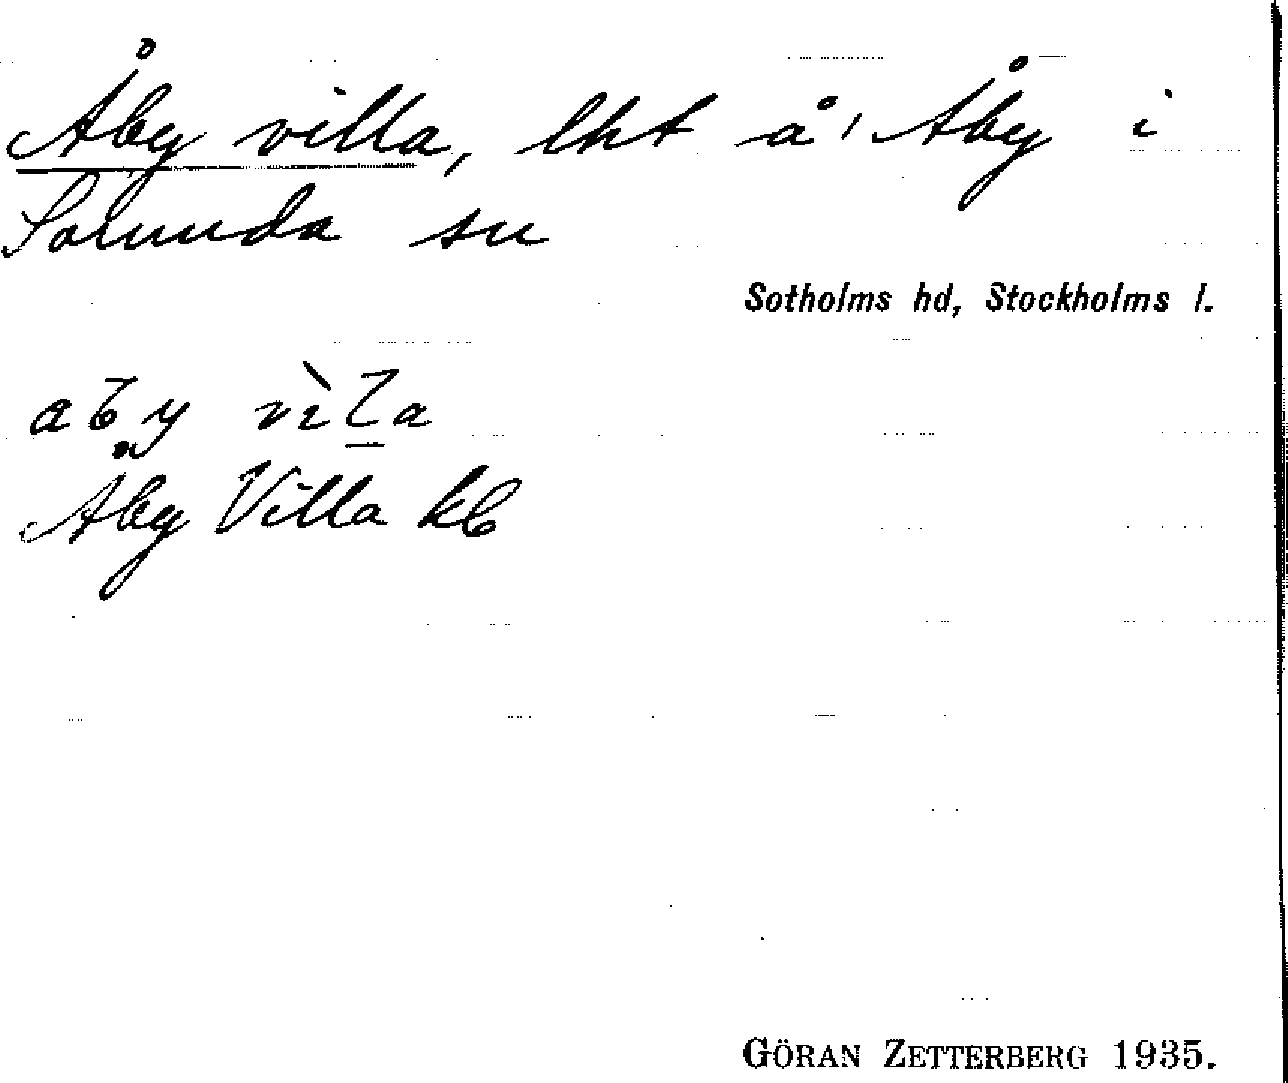 Åby villa, lht å Åby i
Sorunda sn
Sotholms hd, Stockholms l.
Åby Villa kb
GÖRAN ZETTERBERG 1935.